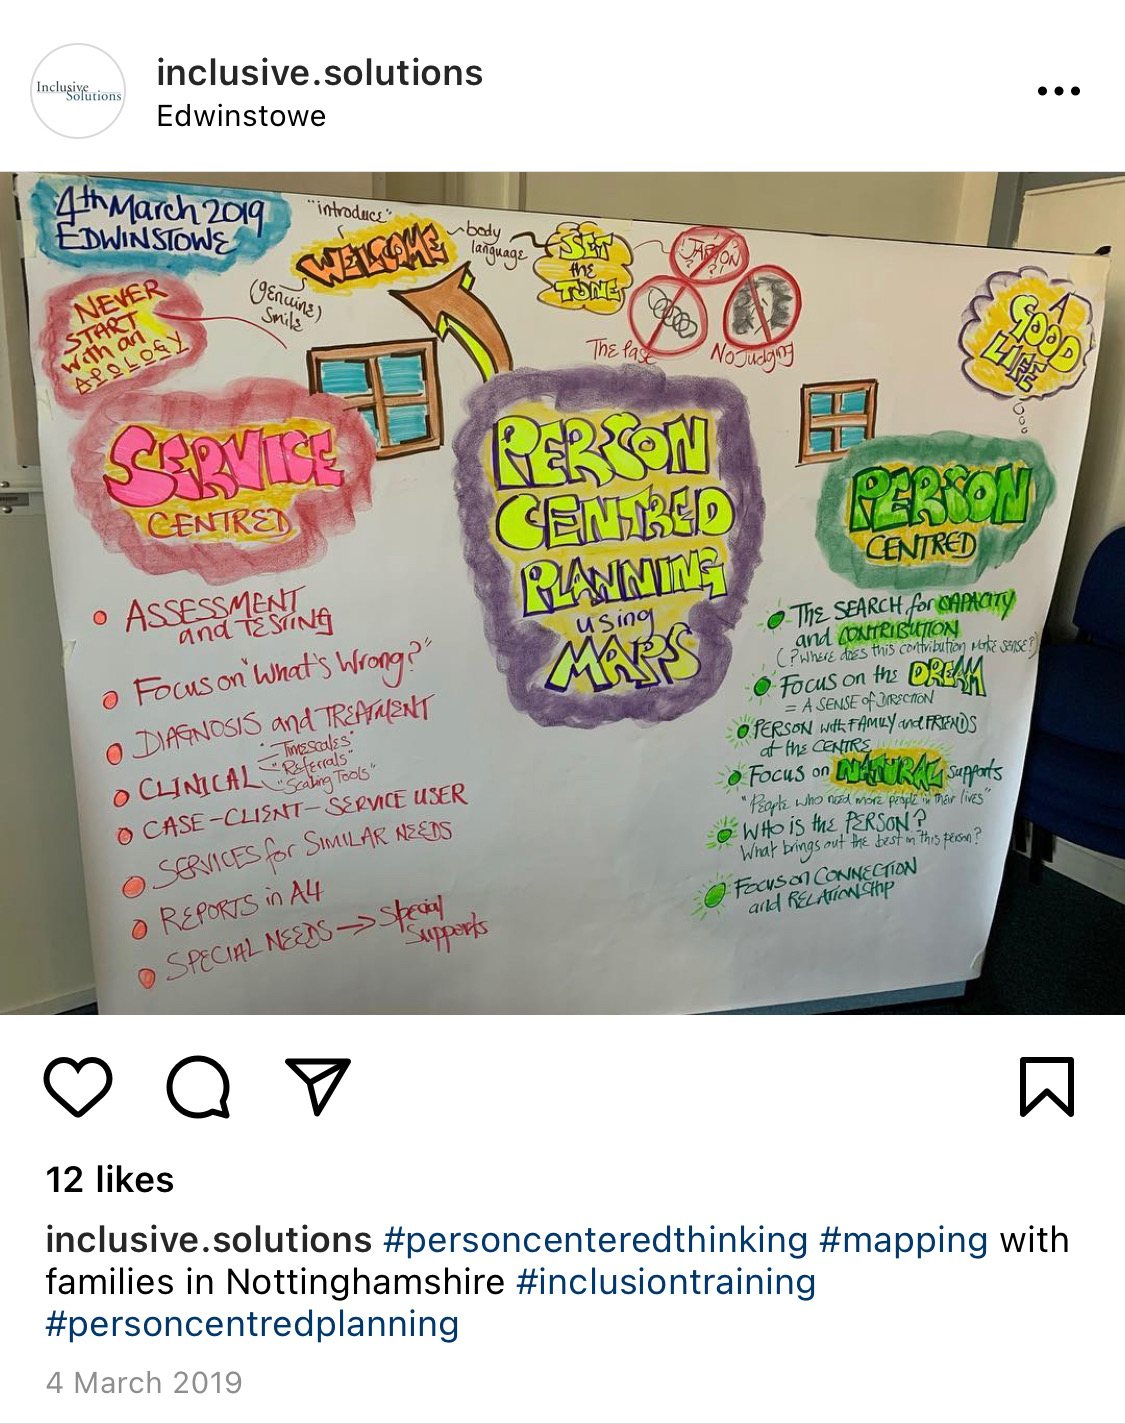 Inclusive
Solutions
inclusive.solutions
Edwinstowe
4th March 2019
EDWINSTOWE
"introduce"
WELCOME
(genuine)
Smile
body
language
SET
the
TONE
JARGON
?!
The Past
No Judging
A
GOOD
LIFE
NEVER
START
with an
APOLOGY
SERVICE
CENTRED
ASSESSMENT
and TESTING
Focus on "What's Wrong?"
DIAGNOSIS and TREATMENT
CLINICAL
"Timescales"
"Referrals"
"Scaling Tools"
CASE-CLIENT-SERVICE USER
SERVICES for SIMILAR NEEDS
REPORTS in A4
SPECIAL NEEDS → Special
Supports
PERSON
CENTRED
PLANNING
using
MAPS
PERSON
CENTRED
The SEARCH for CAPACITY
and CONTRIBUTION
(? Where does this contribution make sense?)
Focus on the DREAM
= A SENSE of DIRECTION
PERSON with FAMILY and FRIENDS
at the CENTRE
Focus on NATURAL supports
"People who need more people in their lives"
WHO is the PERSON?
What brings out the best in this person?
Focus on CONNECTION
and RELATIONSHIP
12 likes
inclusive.solutions #personcenteredthinking #mapping with
families in Nottinghamshire #inclusiontraining
#personcentredplanning
4 March 2019